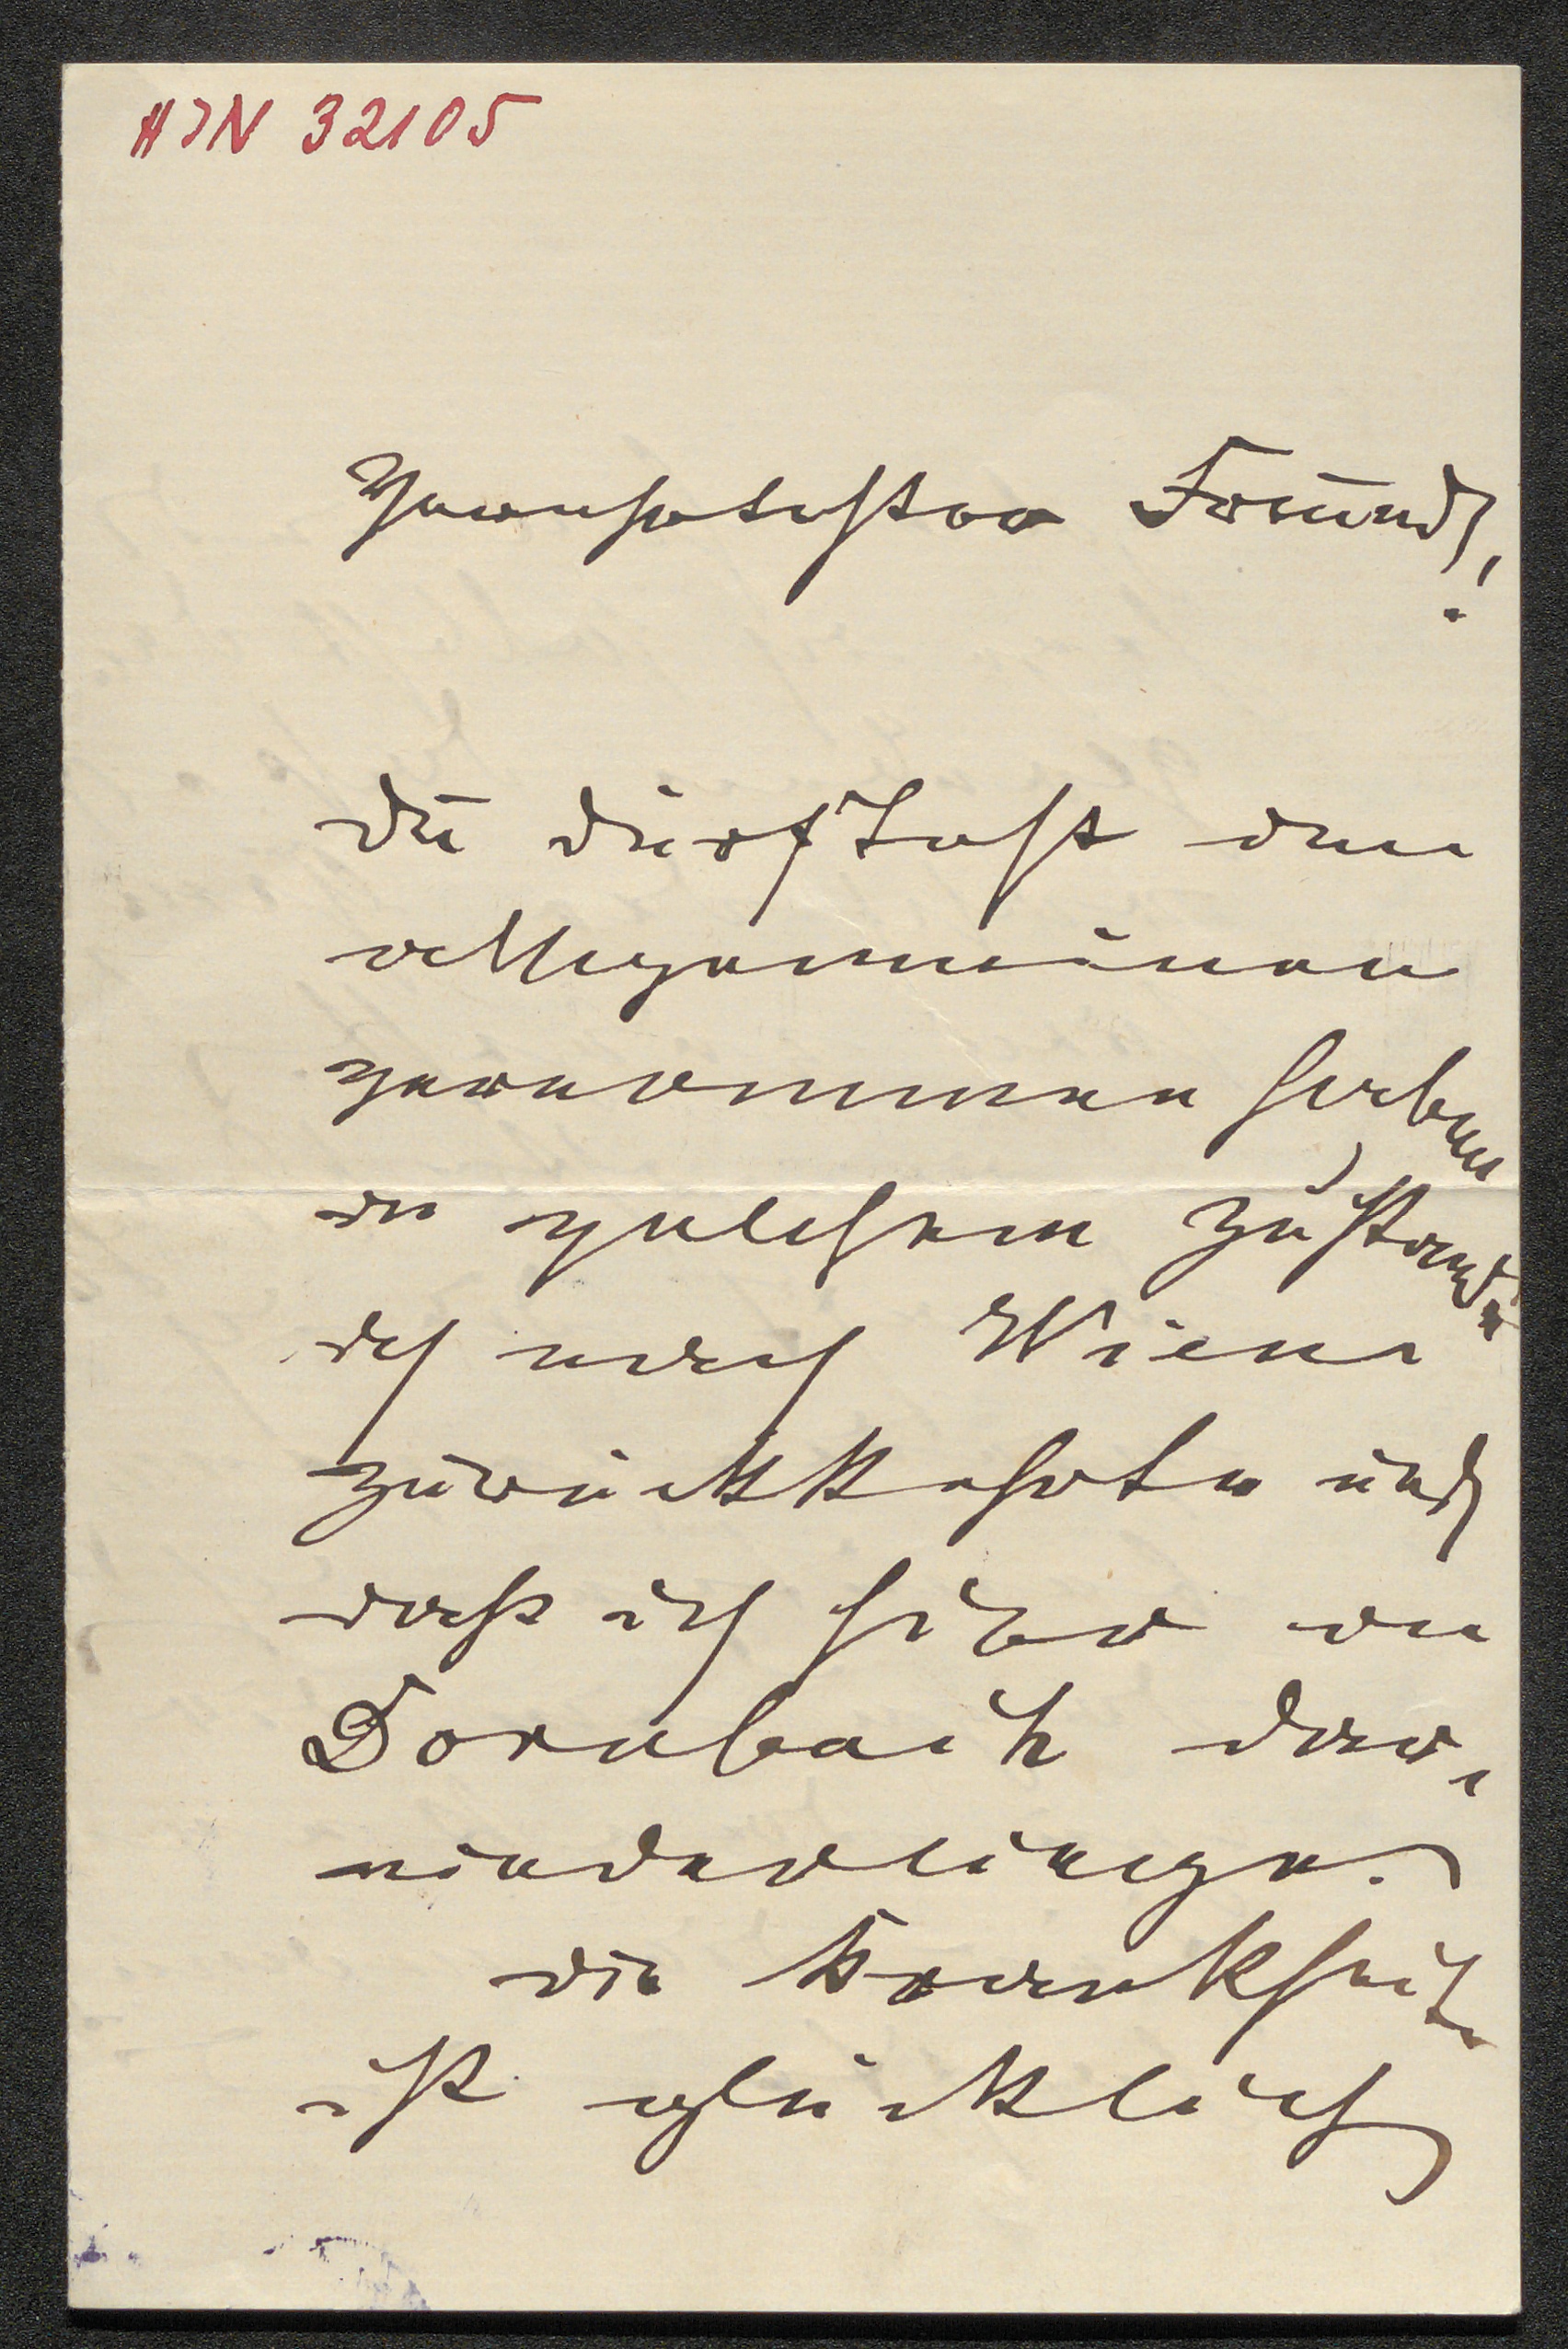 HIN 32105
Verehrtester Freund!
Du dürftest im
allgemeinen
vernommen haben
in welchem Zustande
ich nach Wien
zurückkehrte und
daß ich hier in
Dornbach dar-
niederliege.
Die Krankheit
ist glücklich